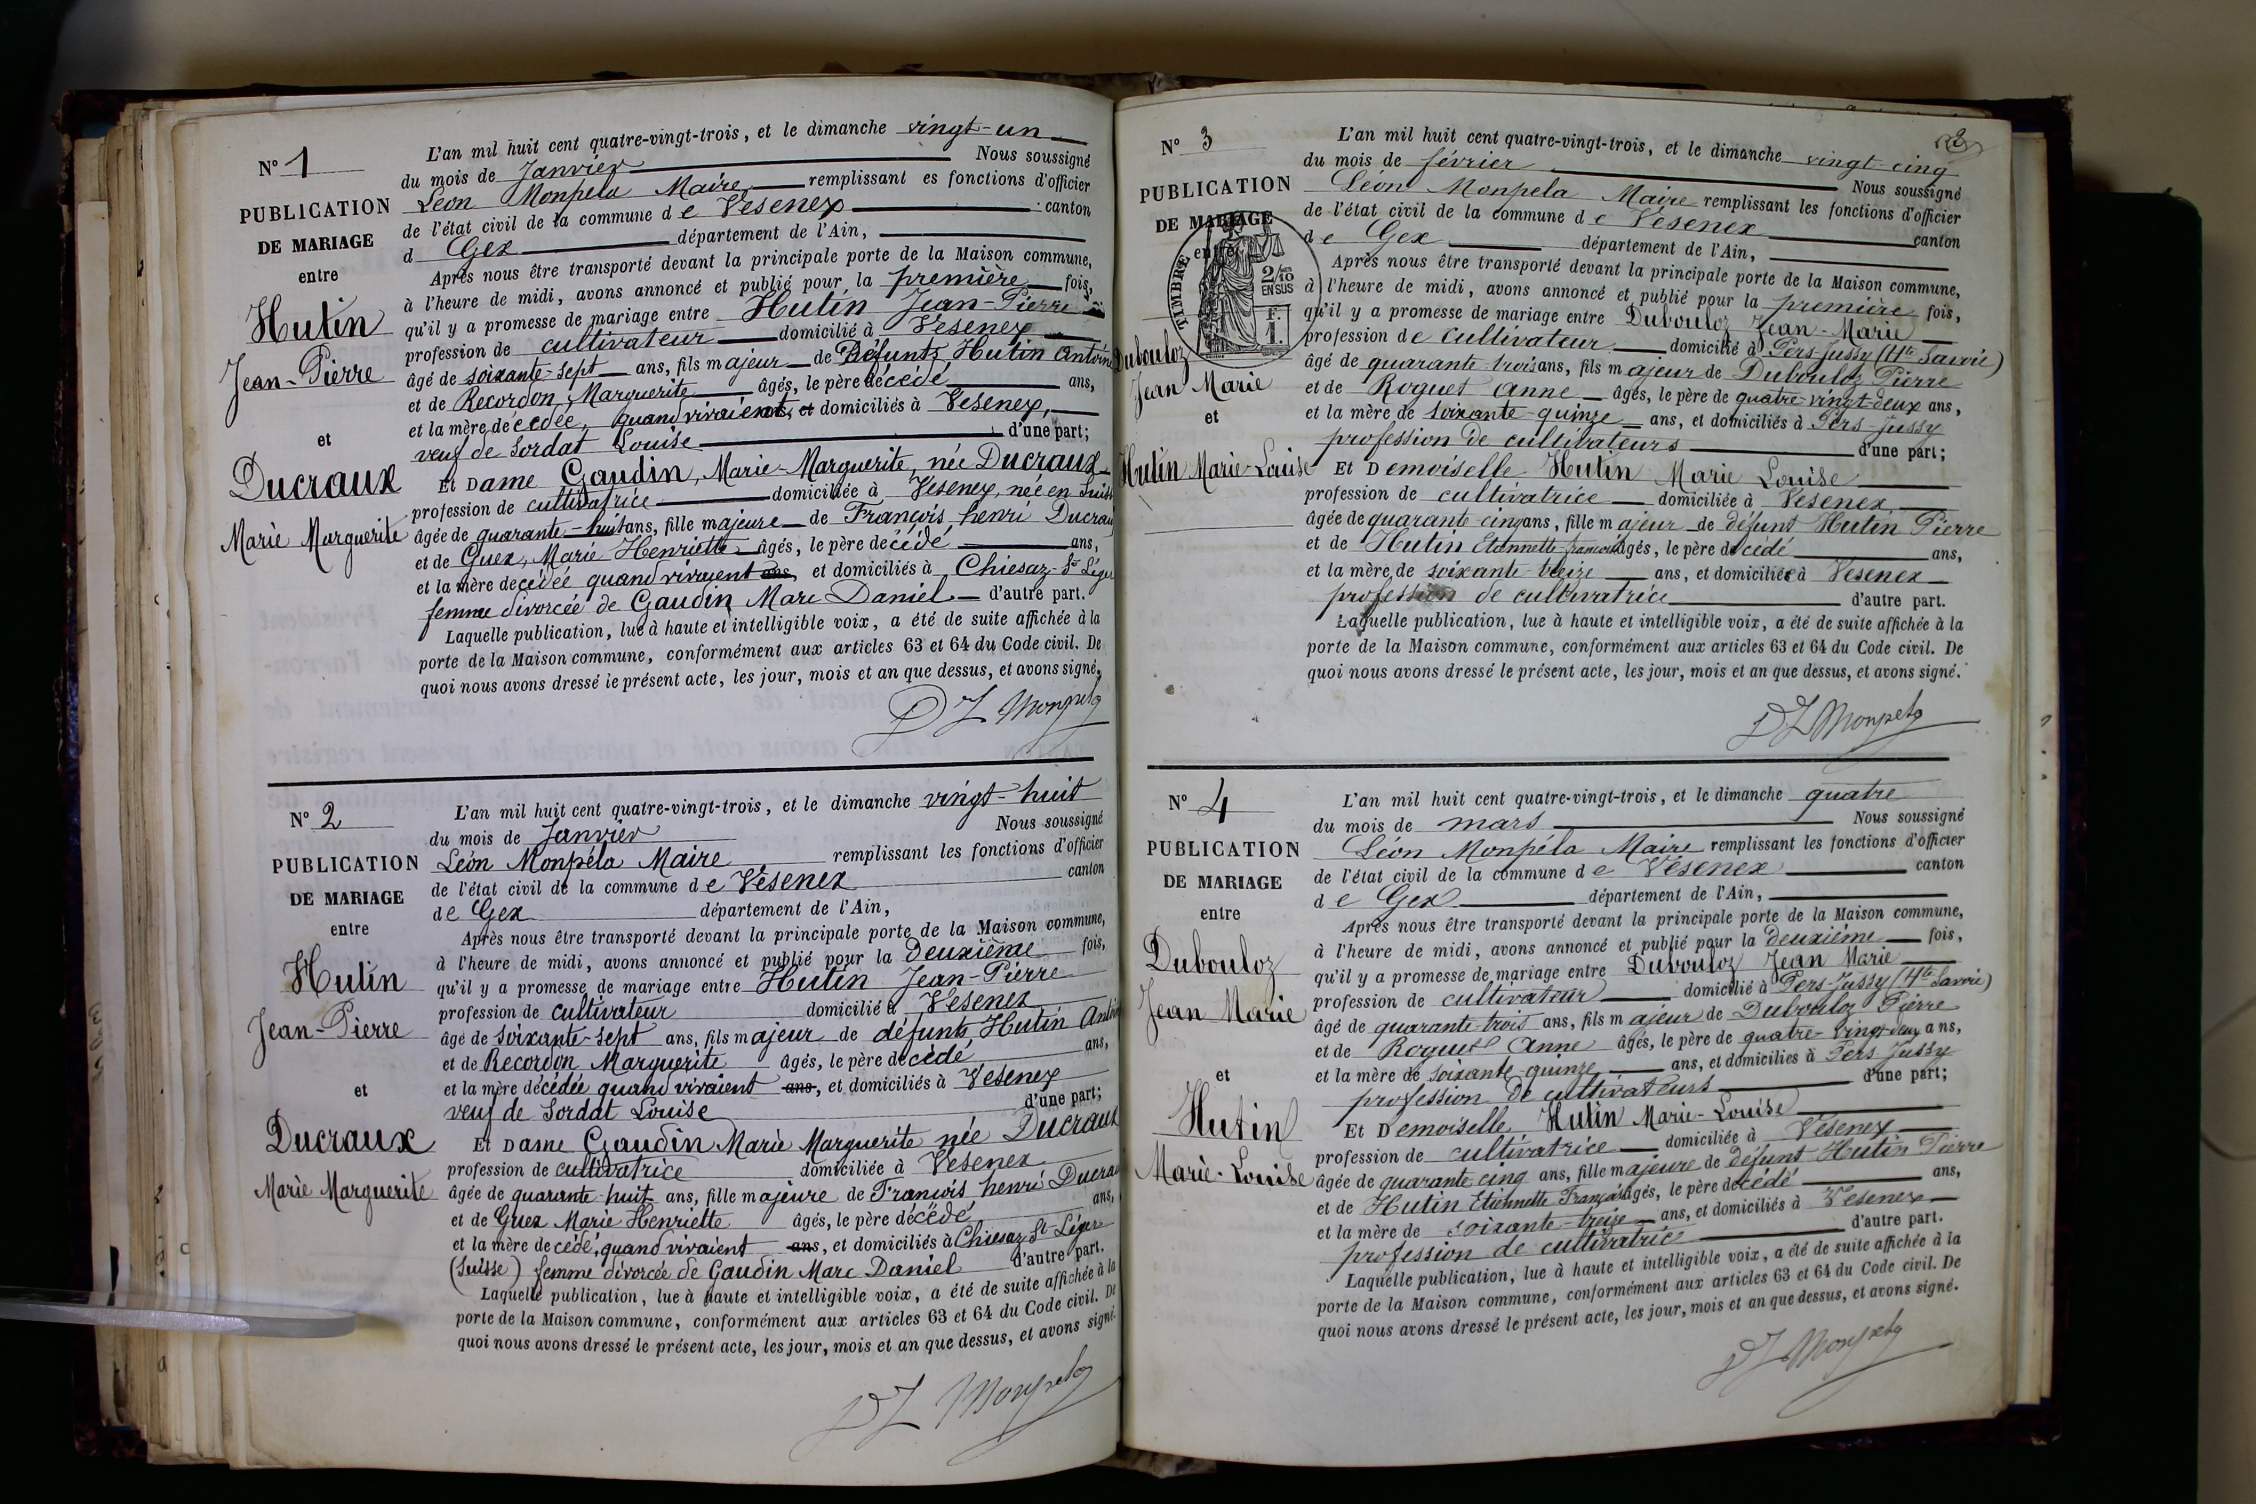 N° 1
PUBLICATION
DE MARIAGE
entre
Hutin
Jean-Pierre
et
Ducraux
Marie Marguerite
L'an mil huit cent quatre-vingt-trois, et le dimanche vingt-un
du mois de Janvier Nous soussigné
Léon Monpéla Maire remplissant es fonctions d'officier
de l'état civil de la commune de Vesenex canton
d Gex département de l'Ain,
Après nous être transporté devant la principale porte de la Maison commune,
à l'heure de midi, avons annoncé et publié pour la première fois,
qu'il y a promesse de mariage entre Hutin Jean-Pierre
profession de cultivateur domicilié à Vesenex
âgé de soixante-sept ans, fils majeur de Défunts Hutin Antoine
et de Recordon Marguerite âgés, le père décédé ans,
et la mère décédée, quand vivaient, et domiciliés à Vesenex,
veuf de Sordat Louise d'une part;
Et Dame Gaudin, Marie-Marguerite, née Ducraux
profession de cultivatrice domiciliée à Vesenex, née en Suisse
âgée de quarante-huit ans, fille majeure de François henri Ducraux
et de Guex, Marie Henriette âgés, le père décédé ans,
et la mère decédée quand vivaient ans, et domiciliés à Chiesaz-St Léger
femme divorcée de Gaudin Marc Daniel d'autre part.
Laquelle publication, lue à haute et intelligible voix, a été de suite affichée à la
porte de la Maison commune, conformément aux articles 63 et 64 du Code civil. De
quoi nous avons dressé le présent acte, les jour, mois et an que dessus, et avons signé.
DL Monpela
N° 2
PUBLICATION
DE MARIAGE
entre
Hutin
Jean-Pierre
et
Ducraux
Marie Marguerite
L'an mil huit cent quatre-vingt-trois, et le dimanche vingt-huit
du mois de Janvier Nous soussigné
Léon Monpéla Maire remplissant les fonctions d'officier
de l'état civil de la commune de Vésenex canton
de Gex département de l'Ain,
Après nous être transporté devant la principale porte de la Maison commune,
à l'heure de midi, avons annoncé et publié pour la Deuxième fois,
qu'il y a promesse de mariage entre Hutin Jean-Pierre
profession de cultivateur domicilié à Vesenex
âgé de soixante-sept ans, fils majeur de défunts Hutin Antoine
et de Recordon Marguerite âgés, le père decédé ans,
et la mère décédée quand vivaient ans, et domiciliés à Vesenex
veuf de Sordat Louise d'une part;
Et Dame Gaudin Marie Marguerite née Ducraux
profession de cultivatrice domiciliée à Vesenex
âgée de quarante-huit ans, fille majeure de François henri Ducraux
et de Guex Marie Henriette âgés, le père décédé ans,
et la mère decédé, quand vivaient ans, et domiciliés à Chiesaz St Léger
(Suisse) femme divorcée de Gaudin Marc Daniel d'autre part.
Laquelle publication, lue à haute et intelligible voix, a été de suite affichée à la
porte de la Maison commune, conformément aux articles 63 et 64 du Code civil. De
quoi nous avons dressé le présent acte, les jour, mois et an que dessus, et avons signé.
DL Monpela
N° 3
PUBLICATION
DE MARIAGE
entre
TIMBRE
2/10
EN SUS
F.
1.
Dubouloz
Jean Marie
et
Hutin Marie-Louise
L'an mil huit cent quatre-vingt-trois, et le dimanche vingt-cinq
du mois de février Nous soussigné
Léon Monpela Maire remplissant les fonctions d'officier
de l'état civil de la commune de Vésenex canton
de Gex département de l'Ain,
Après nous être transporté devant la principale porte de la Maison commune,
à l'heure de midi, avons annoncé et publié pour la première fois,
qu'il y a promesse de mariage entre Dubouloz Jean-Marie
profession de cultivateur domicilié à Pers-Jussy (Hte Savoie)
âgé de quarante-trois ans, fils majeur de Dubouloz Pierre
et de Roguet Anne âgés, le père de quatre-vingt-deux ans,
et la mère de soixante-quinze ans, et domiciliés à Pers-Jussy
profession de cultivateurs d'une part;
Et Demoiselle Hutin Marie Louise
profession de cultivatrice domiciliée à Vesenex
âgée de quarante cinq ans, fille majeur de défunt Hutin Pierre
et de Hutin Etiennette françoise âgés, le père décédé ans,
et la mère de soixante-treize ans, et domiciliée à Vesenex
profession de cultivatrice d'autre part.
Laquelle publication, lue à haute et intelligible voix, a été de suite affichée à la
porte de la Maison commune, conformément aux articles 63 et 64 du Code civil. De
quoi nous avons dressé le présent acte, les jour, mois et an que dessus, et avons signé.
DL Monpela
N° 4
PUBLICATION
DE MARIAGE
entre
Dubouloz
Jean Marie
et
Hutin
Marie-Louise
L'an mil huit cent quatre-vingt-trois, et le dimanche quatre
du mois de mars Nous soussigné
Léon Monpéla Maire remplissant les fonctions d'officier
de l'état civil de la commune de Vésenex canton
de Gex département de l'Ain,
Après nous être transporté devant la principale porte de la Maison commune,
à l'heure de midi, avons annoncé et publié pour la deuxième fois,
qu'il y a promesse de mariage entre Dubouloz Jean Marie
profession de cultivateur domicilié à Pers-Jussy (Hte Savoie)
âgé de quarante-trois ans, fils majeur de Dubouloz Pierre
et de Roguet Anne âgés, le père de quatre-vingt-deux ans,
et la mère de soixante-quinze ans, et domiciliés à Pers Jussy
profession de cultivateurs d'une part;
Et Demoiselle Hutin Marie-Louise
profession de cultivatrice domiciliée à Vésenex
âgée de quarante cinq ans, fille majeure de défunt Hutin Pierre
et de Hutin Etiennette Françoise âgés, le père decédé ans,
et la mère de soixante-treize ans, et domiciliés à Vesenex
profession de cultivatrice d'autre part.
Laquelle publication, lue à haute et intelligible voix, a été de suite affichée à la
porte de la Maison commune, conformément aux articles 63 et 64 du Code civil. De
quoi nous avons dressé le présent acte, les jour, mois et an que dessus, et avons signé.
DL Monpela